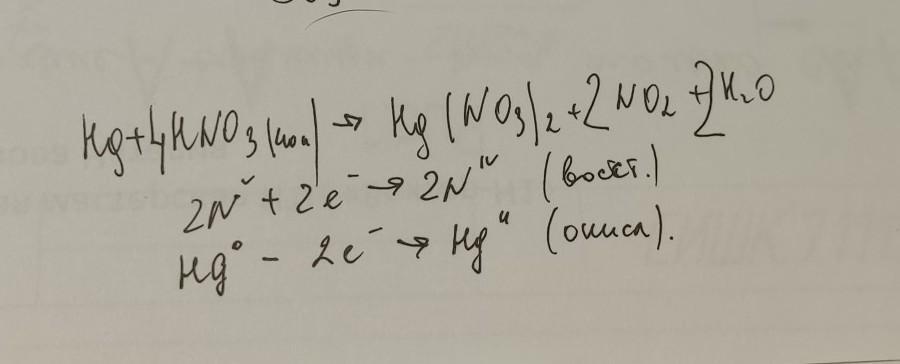 Hg + 4HNO₃(кон) → Hg(NO₃)₂ + 2NO₂ + 2H₂O
2Nⱽ + 2e⁻ → 2Nᴵⱽ (восст.)
Hg⁰ - 2e⁻ → Hgᴵᴵ (окисл).